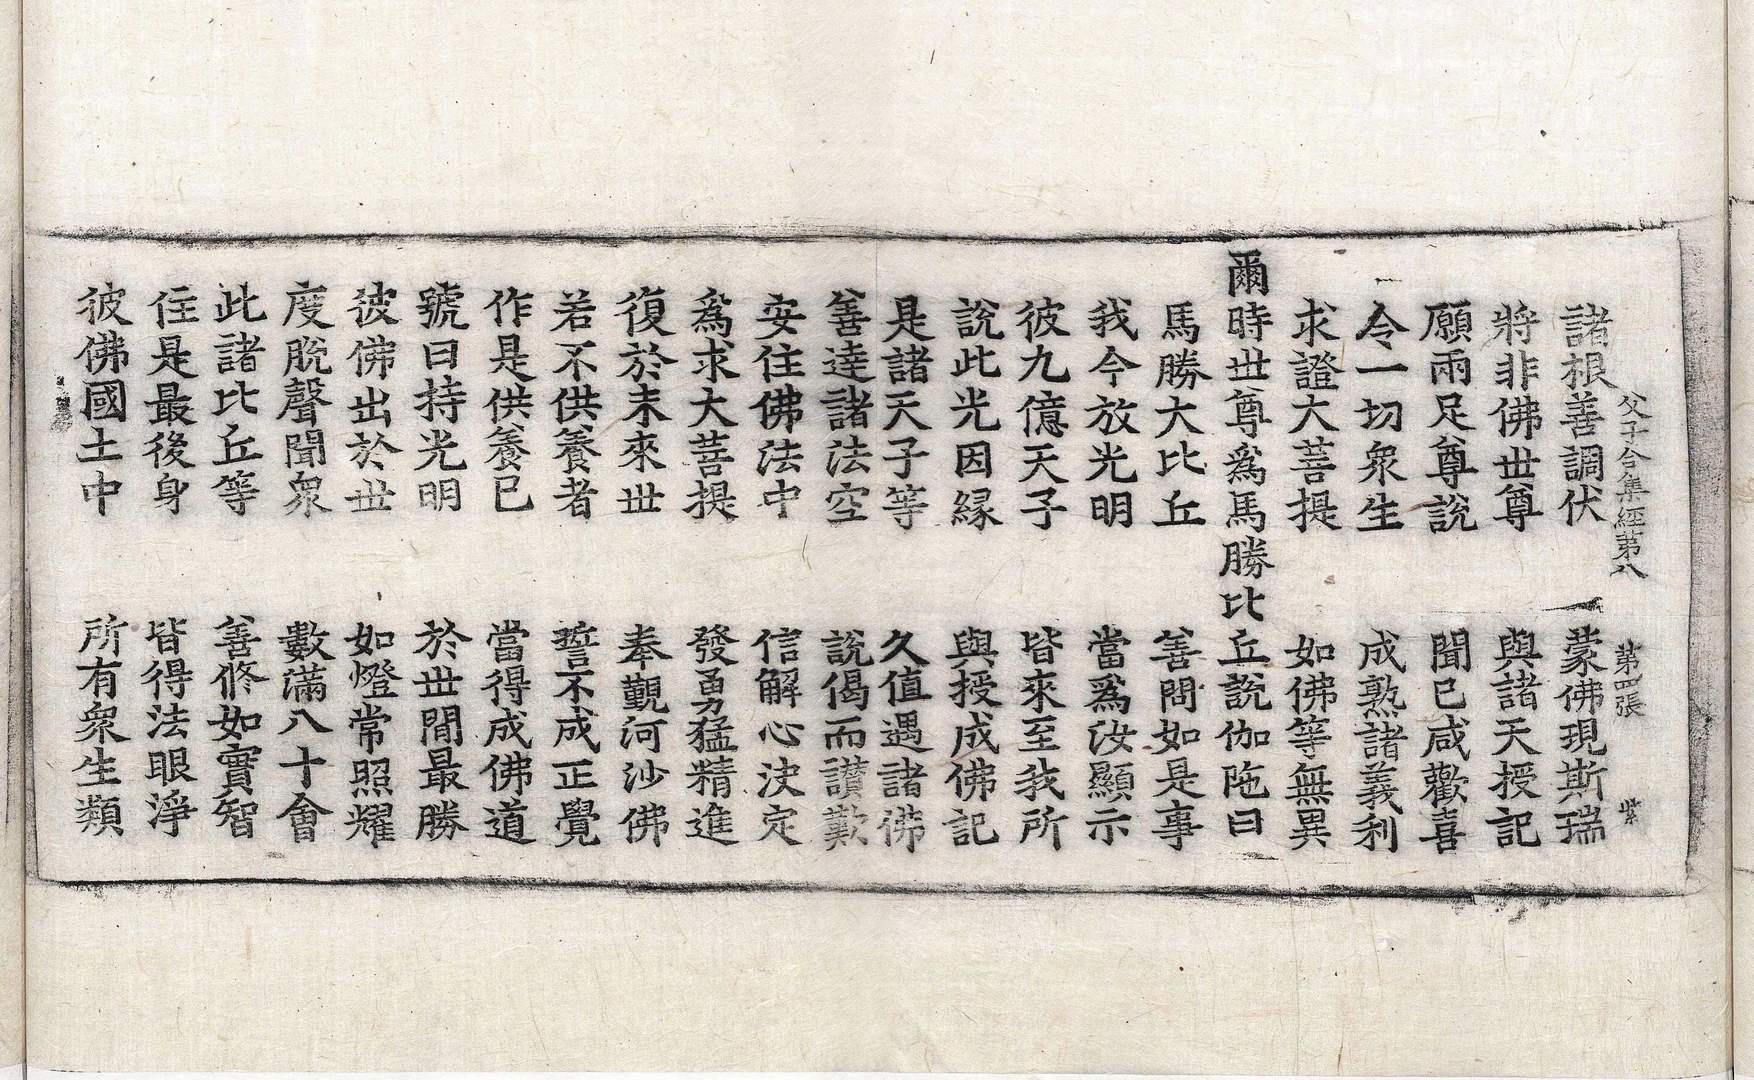 父子合集經第八 第四張 紫
諸根善調伏 蒙佛現斯瑞
將非佛世尊 與諸天授記
願兩足尊說 聞已咸歡喜
令一切衆生 成熟諸義利
求證大菩提 如佛等無異
爾時世尊爲馬勝比丘說伽陁曰
馬勝大比丘 善問如是事
我今放光明 當爲汝顯示
彼九億天子 皆來至我所
說此光因緣 與授成佛記
是諸天子等 久值遇諸佛
善達諸法空 說偈而讃歎
安住佛法中 信解心決定
爲求大菩提 發勇猛精進
復於未來世 奉覲河沙佛
若不供養者 誓不成正覺
作是供養已 當得成佛道
號曰持光明 於世間最勝
彼佛出於世 如燈常照耀
度脫聲聞衆 數滿八十會
此諸比丘等 善修如實智
住是最後身 皆得法眼淨
彼佛國土中 所有衆生類